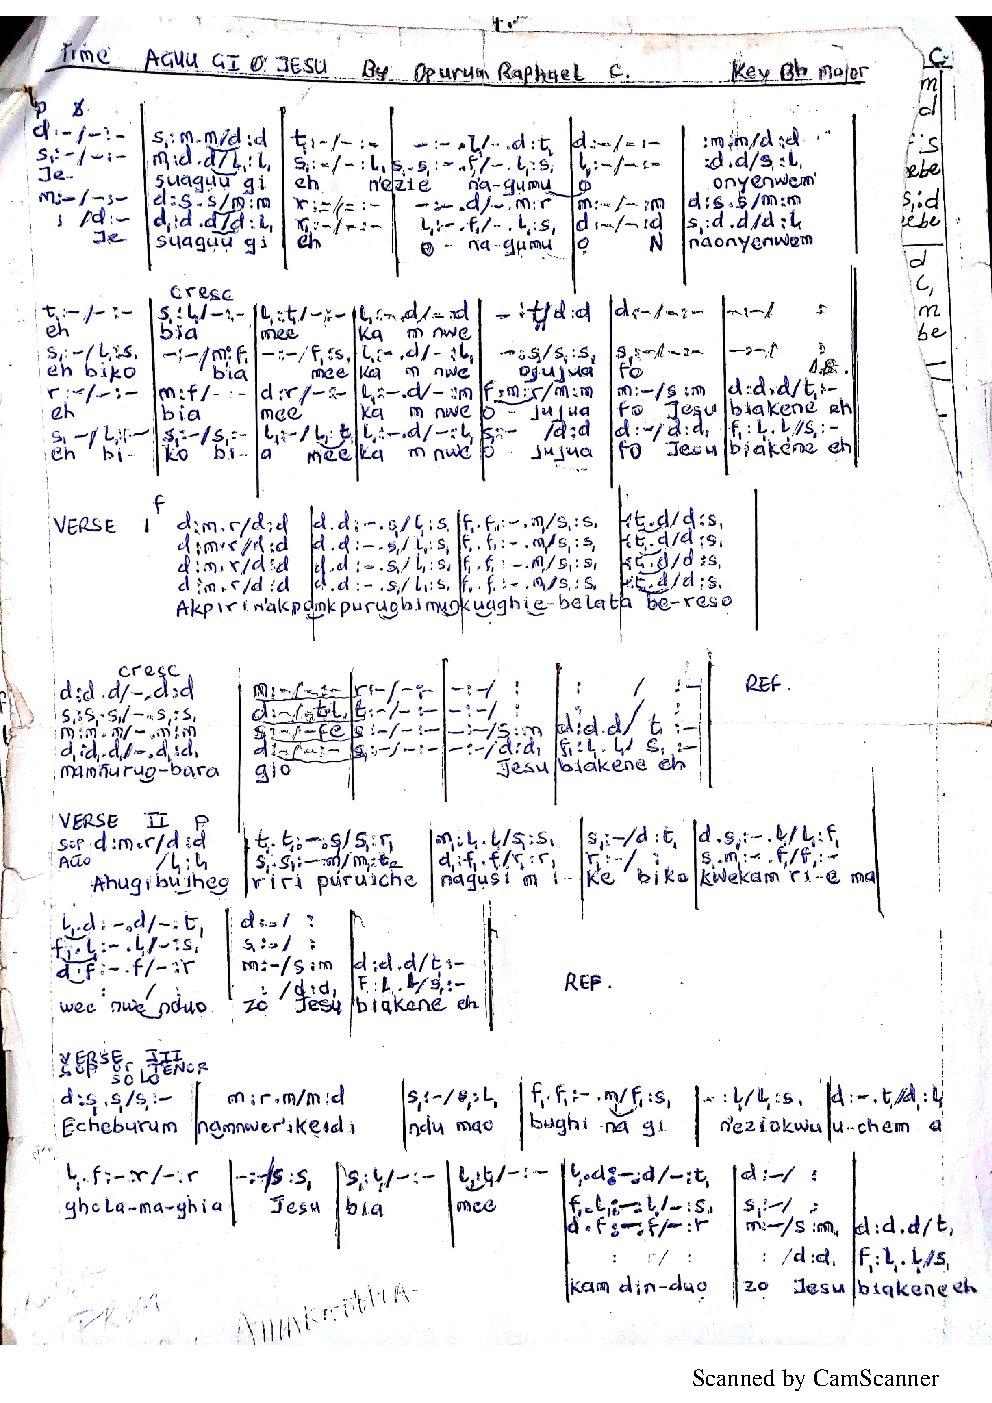 Time AGUU GI O JESU By Opurum Raphael C. Key Bb major
P
d:-/-:- s,:m.m/d:d t,:-/-:- -:-.L,/-.d:t, d:-/-:- :m.m/d:d
s,:-/-:- m:d.d/L,:L, s,:-/-:L, s,.s,:-.f,/-.L,:s, L,:-/-:- :d.d/s,:L,
Je- suaguu gi eh n'ezie na-gumu o onyenwem'
m:-/-:- d:s.s/m:m r:-/-:- -:-.d/-.m:r m:-/-:m d:s.s/m:m
: /d:- d:d.d/d:L, r,:-/-:- L,:-.f,/-.L,:s, d:-/-:d s,:d.d/d:L,
Je suaguu gi eh O - na-gumu O N naonyenwem
cresc
t,:-/-:- s,:L,/-:- L,:t,/-:- L,:-.d/-:d -:t,/d:d d:-/-:- -:-/ :
eh bia mee ka m nwe
s,:-/L,:s, -:-/m,:f, -:-/f,:s, L,:-.d/-:L, -:s,/s,:s, s,:-/-:- -:-/ :
eh biko bia mee ka m nwe ojujua fo D.S.
r:-/-:- m:f/-:- d:r/-:- L,:-.d/-:m f:m:r/m:m m:-/s:m d:d.d/t,:-
eh bia mee ka m nwe o - jujua fo Jesu biakene eh
s,:-/L,:- s,:-/s,:- L,:-/L,:t, L,:-.d/-:L, s,:- /d:d d:-/d:d, f,:L,.L,/s,:-
eh bi- ko bi- a mee ka m nwe o jujua fo Jesu biakene eh
f
VERSE 1 d:m.r/d:d d.d:-.s,/L,:s, f,.f,:-.m,/s,:s, -:t,.d/d:s,
d:m.r/d:d d.d:-.s,/L,:s, f,.f,:-.m,/s,:s, -:t,.d/d:s,
d:m.r/d:d d.d:-.s,/L,:s, f,.f,:-.m,/s,:s, -:t,.d/d:s,
d:m.r/d:d d.d:-.s,/L,:s, f,.f,:-.m,/s,:s, -:t,.d/d:s,
Akpirin'akpomkpurugbimonkuaghie-belata be-reso
cresc
d:d.d/-.d:d m:-/-:- r:-/-:- -:-/ : : / :- REF.
s,:s,.s,/-.s,:s, d:-/-.t,:L, t,:-/-:- -:-/ :
m:m.m/-.m:m s:-/-:fe s:-/-:- -:-/s:m d:d.d/ t,:-
d,:d,.d,/-.d,:d, d:-/-:- s,:-/-:- -:-/d:d, f,:L,.L,/ s,:-
mamnurug-bara gio Jesu biakene eh
VERSE II P
Sop d:m.r/d:d t,.t,:-.s,/s,:r, m,:L,.L,/s,:s, s,:-/d:t, d.s,:-.L,/L,:f,
Alto /L,:L, s,.s,:-.m,/m,:t₂ d,:f,.f,/r,:r, r,:-/ : s,.m,:-.f,/f,:-
Ahugibuiheg riri puruiche nagusi m i- ke biko kwekam ri-e ma
L,.d:-.d/-:t, d:-/ :
f,.L,:-.L,/-:s, s,:-/ :
d.f:-.f/-:r m:-/s:m d:d.d/t,:- REF.
: / : : /d:d, f,:L,.L,/s,:-
wee nwe nduo zo Jesu biakene eh
VERSE III
SOP or TENOR
SOLO
d:s,.s,/s,:- m:r.m/m:d s,:-/s,:L, f,.f,:-.m,/f,:s, -:L,/L,:s, d:-.t,/d:L,
Echeburum namnwer'ikeidi ndu mao bughi na gi n'eziokwu u-chem a
L,.f:-.r/-:r -:-/s:s, s,:L,/-:- L,:t,/-:- L,.d:-.d/-:t, d:-/ :
ghola-ma-ghia Jesu bia mee f,.L,:-.L,/-:s, s,:-/ :
d.f:-.f/-:r m:-/s:m, d:d.d/t,
: r/ : : /d:d, f,:L,.L,/s,
kam din-duo zo Jesu biakene eh
Scanned by CamScanner